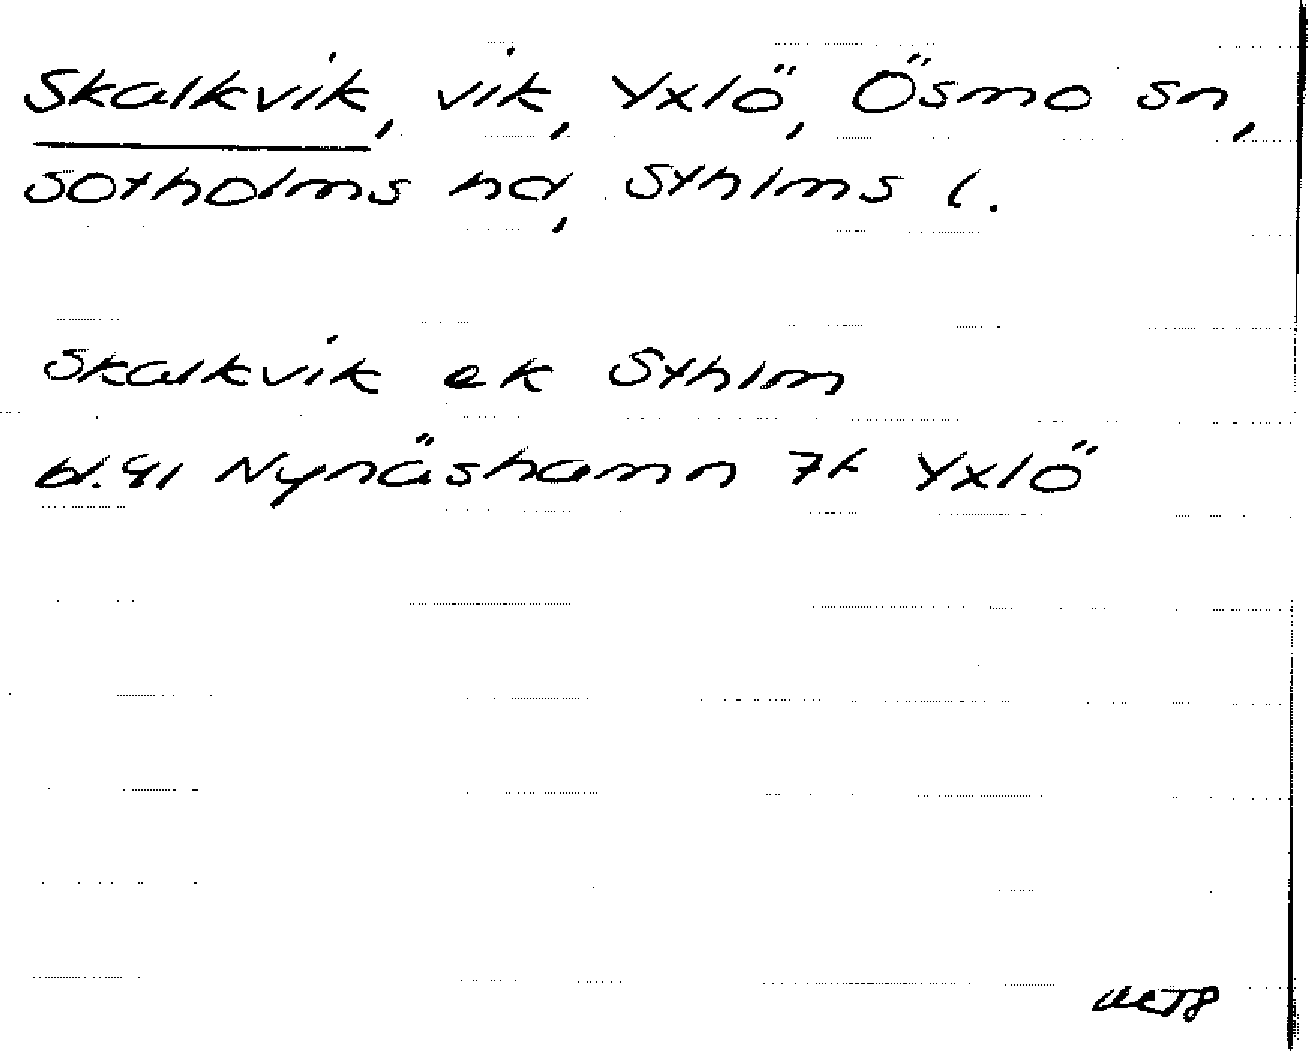 Skalkvik, vik, Yxlö, Ösmo sn,
Sotholms hd, Sthlms l.
Skalkvik ek Sthlm
bl. 41 Nynäshamn 7f Yxlö